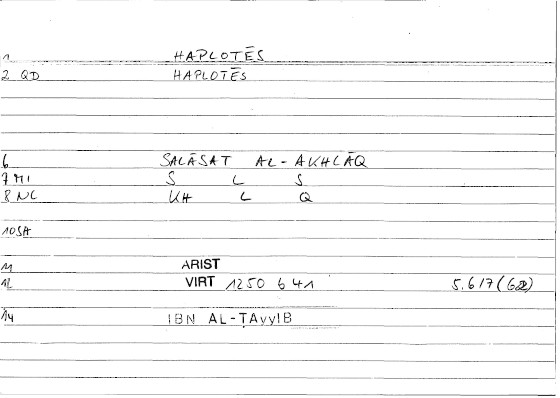 1 HAPLOTĒS
2 QD HAPLOTĒS
6 SALĀSAT AL-AKHLĀQ
7 MI S L S
8 NC KH L Q
10 SH
11 ARIST
12 VIRT 1250 b 41 5.617
14 IBN AL-ṬAyyIB